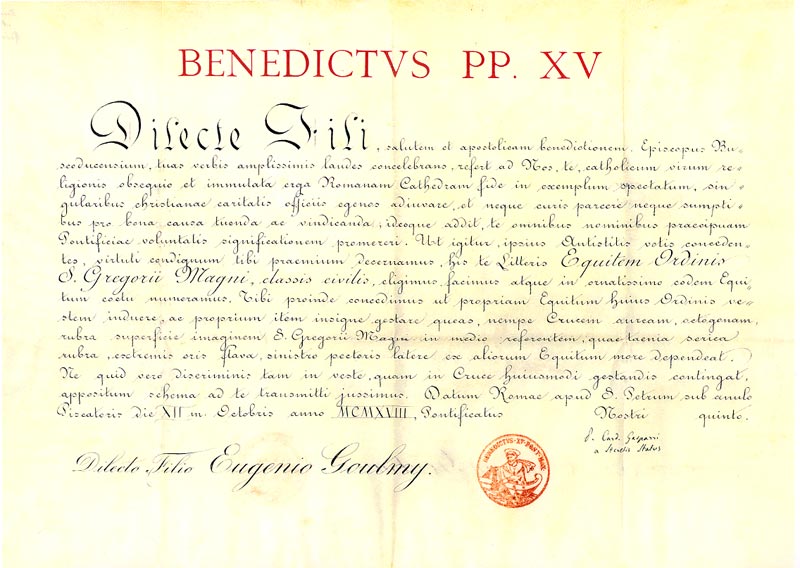 BENEDICTVS PP. XV
Dilecte Fili, salutem et apostolicam benedictionem. Episcopus Bu-
scoducensium, tuas verbis amplissimis laudes concelebrans, refert ad Nos, te, catholicum virum re-
ligionis obsequio et immutata erga Romanam Cathedram fide in exemplum spectatum, sin-
gularibus christianae caritatis officiis egenos adiuvare, et neque curis parcere neque sumpti-
bus pro bona causa tuenda ac vindicanda; ideoque addit, te omnibus nominibus praecipuam
Pontificiae voluntatis significationem promereri. Ut igitur, ipsius Antistitis votis conceden-
tes, virtuti condignum tibi praemium decernamus, his te Litteris Equitem Ordinis
S. Gregorii Magni, classis civilis, eligimus, facimus atque in ornatissimo eodem Equi-
tum coetu numeramus. Tibi proinde concedimus ut propriam Equitum huius Ordinis ve-
stem induere, ac proprium item insigne gestare queas, nempe Crucem auream, octogonam,
rubra superficie imaginem S. Gregorii Magni in medio referentem, quae taenia serica
rubra, extremis oris flava, sinistro pectoris latere ex aliorum Equitum more dependeat.
Ne quid vero discriminis tam in veste, quam in Cruce huiusmodi gestandis contingat,
appositum schema ad te transmitti jussimus. Datum Romae apud S. Petrum sub anulo
Piscatoris die XII m. Octobris anno MCMXVIII, Pontificatus Nostri quinto.
P. Card. Gasparri
a Secretis Status
Dilecto Filio Eugenio Goulmy.
BENEDICTVS·XV·PONT·MAX